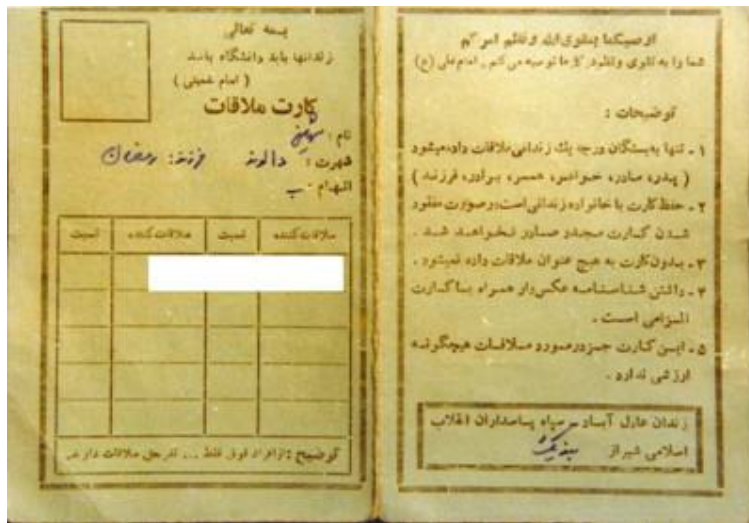 اوصیکما بتقوی‌الله و نظم امرکم
شما را به تقوی و نظم در کارها توصیه می‌کنم. امام علی (ع)
توضیحات :
۱ ـ تنها به بستگان درجه یك زندانی ملاقات داده میشود
( پدر، مادر، خواهر، همسر، برادر، فرزند )
۲ ـ حفظ کارت با خانواده زندانی است در صورت مفقود
شدن کارت مجدد صادر نخواهد شد .
۳ ـ بدون کارت به هیچ عنوان ملاقات داده نمیشود .
۴ ـ داشتن شناسنامه عکس‌دار همراه با کارت
الزامی است .
۵ ـ این کارت جز در مورد ملاقات هیچگونه
ارزشی ندارد .
زندان عادل آباد ـ سپاه پاسداران انقلاب
اسلامی شیراز
بسمه تعالی
زندانها باید دانشگاه باشد
( امام خمینی )
کارت ملاقات
نام :
شهرت : دالوند فرزند: رمضان
اتهام : ب
ملاقات کننده نسبت ملاقات کننده نسبت
توضیح : از افراد فوق فقط ... نفر حق ملاقات دارند.